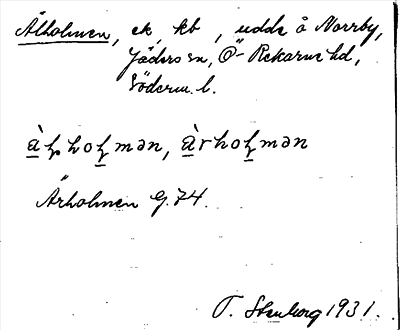 Ålholmen, ek, kb, udde å Norrby,
Jäders sn, Ö-Rekarne hd,
Söderm. l.
Årholmen G. 74.
T. Stenborg 1931.